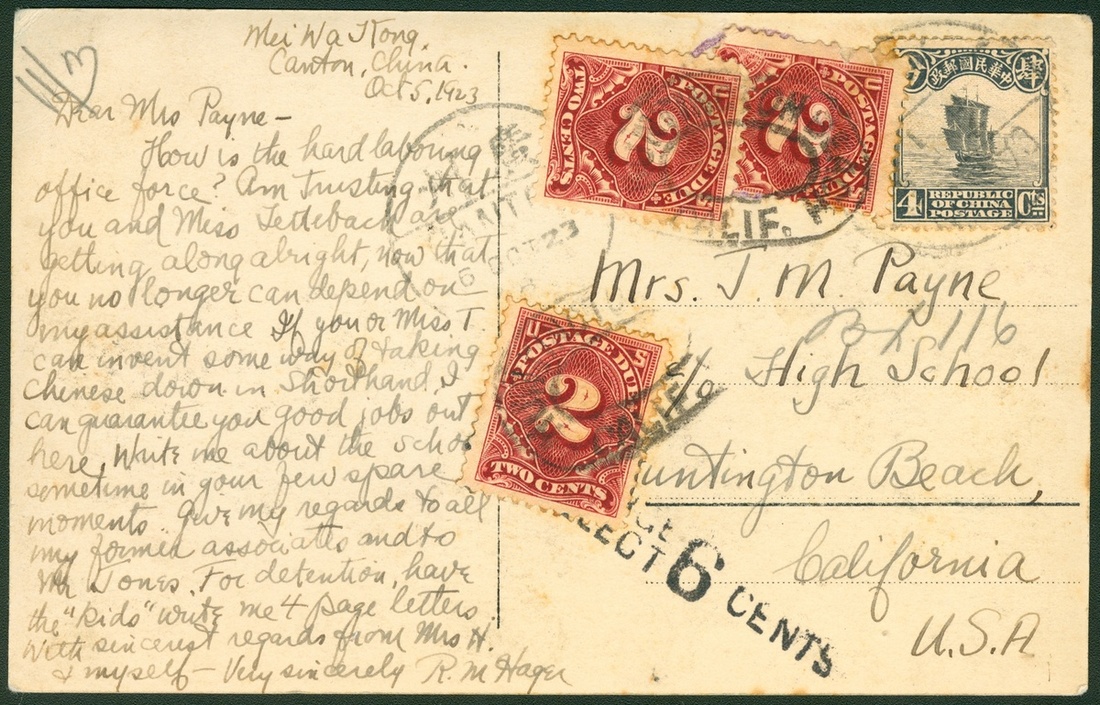 Mei Wa Kong,
Canton, China.
Oct 5, 1923
Dear Mrs Payne –
How is the hard labouring
office force? Am trusting that
you and Miss Tetteback are
getting along alright, now that
you no longer can depend on
my assistance If you or Miss T.
can invent some way of taking
Chinese down in Shorthand, I
can guarantee you good jobs out
here. Write me about the school
sometime in your few spare
moments. Give my regards to all
my former associates and to
Mr Jones. For detention, have
the "kids" write me 4 page letters.
With sincerest regards from Mrs H.
& myself – Very sincerely R. M Hager
POSTAGE DUE
2
TWO CENTS
U S
POSTAGE DUE
2
U
CALIF.
中華民國郵政
肆
4 Cts
REPUBLIC
OF CHINA
POSTAGE
Mrs. J. M. Payne
Bx 116
High School
Huntington Beach,
California
U.S.A
U S
POSTAGE DUE
2
TWO CENTS
COLLECT 6 CENTS